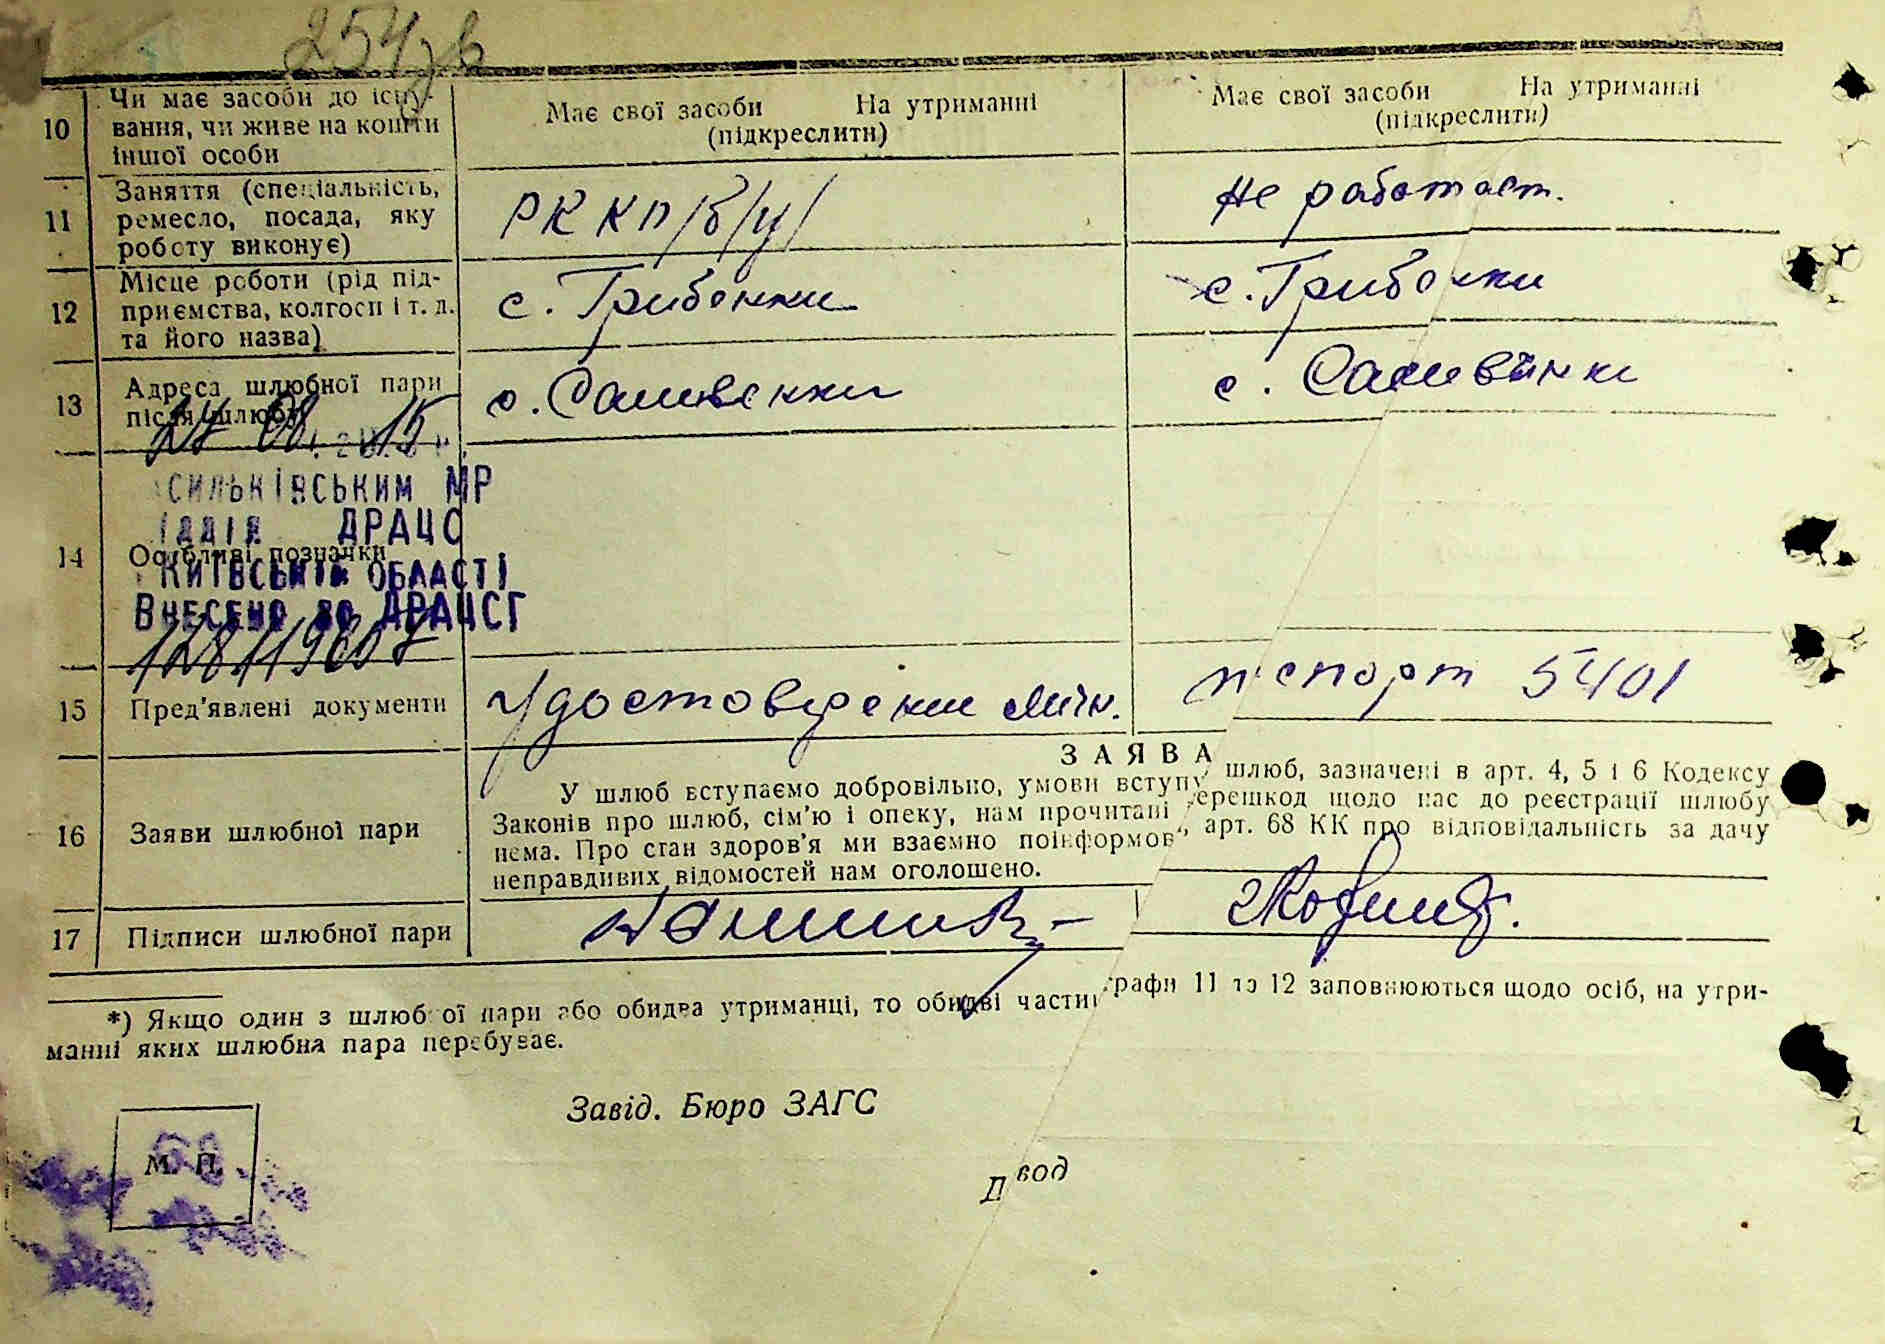 254 зв
10 Чи має засоби до існу-
вання, чи живе на кошти
іншої особи
Має свої засоби На утриманні
(підкреслити)
Має свої засоби На утриманні
(підкреслити)
11 Заняття (спеціальність,
ремесло, посада, яку
роботу виконує)
РККП/б/ц/
Не работает.
12 Місце роботи (рід під-
приємства, колгосп і т. д.
та його назва)
с. Грибенки
с. Грибенки
13 Адреса шлюбної пари
після шлюбу
с. Саливенки
с. Саливанки
27 08. 2015 р.
СИЛЬКІВСЬКИМ МР
ІДДІЛ ДРАЦС
14 Особливі позначки
КИЇВСЬКІЙ ОБЛАСТІ
ВНЕСЕНО ДО ДРАЦСГ
128119607
15 Пред'явлені документи
Удостоверение личн.
паспорт 5401
16 Заяви шлюбної пари
ЗАЯВА
У шлюб вступаємо добровільно, умови вступу шлюб, зазначені в арт. 4, 5 і 6 Кодексу
Законів про шлюб, сім'ю і опеку, нам прочитані перешкод щодо нас до реєстрації шлюбу
нема. Про стан здоров'я ми взаємно поінформов арт. 68 КК про відповідальність за дачу
неправдивих відомостей нам оголошено.
17 Підписи шлюбної пари
*) Якщо один з шлюбної пари або обидва утриманці, то обидві части графи 11 та 12 заповнюються щодо осіб, на утри-
манні яких шлюбна пара перебуває.
Завід. Бюро ЗАГС
М. П.
Д вод